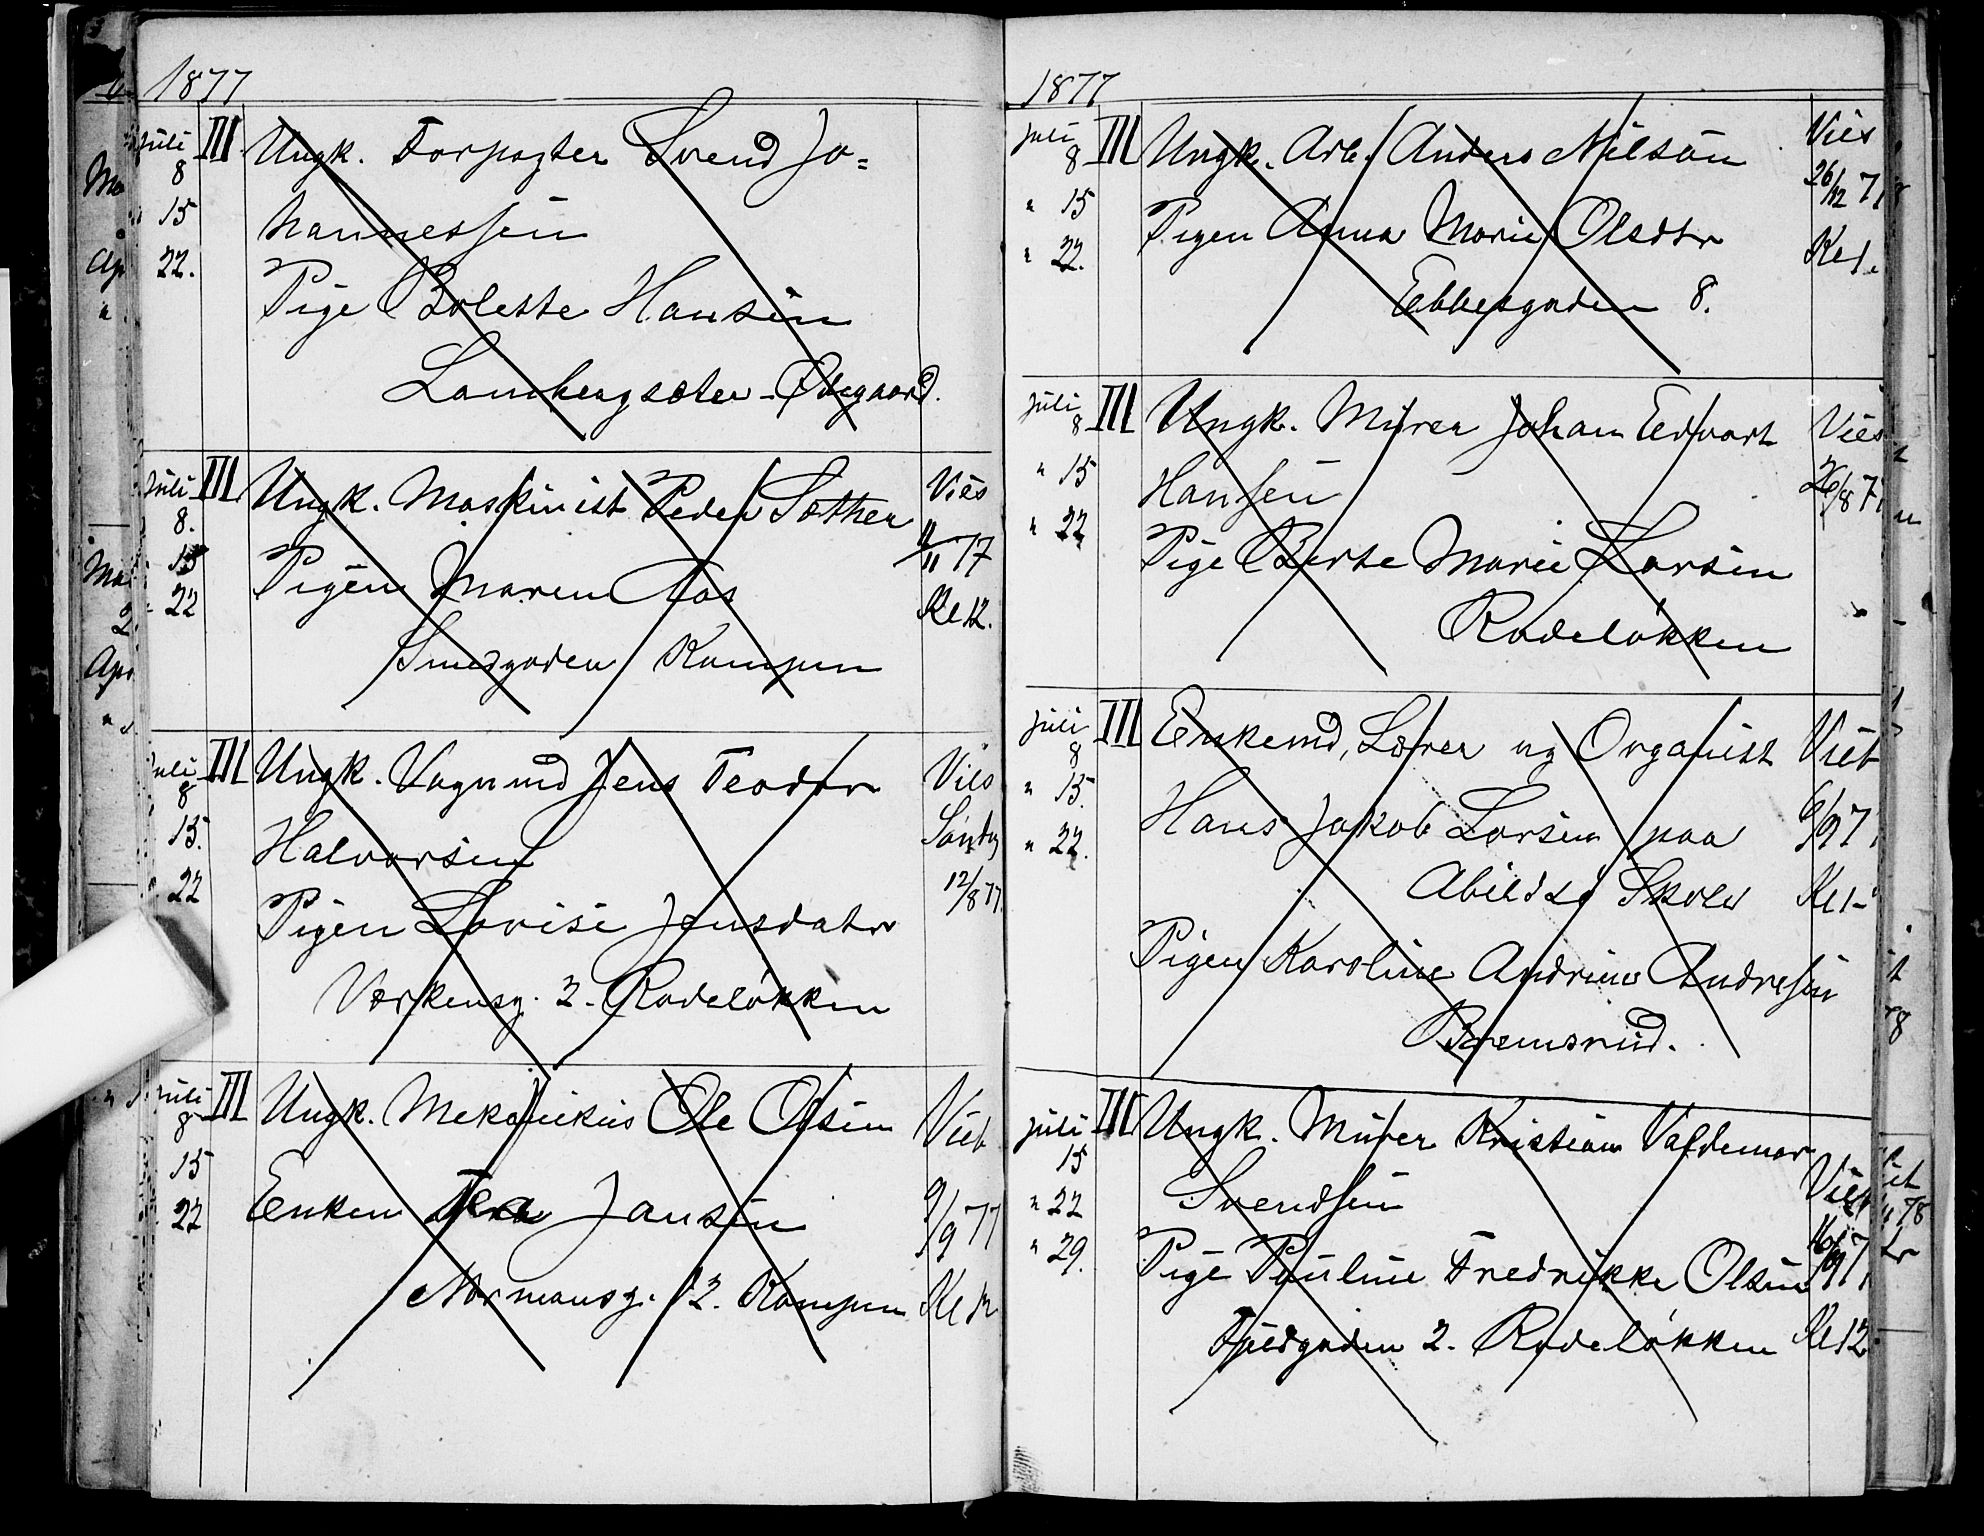 1877
Juli III Ungk. Forpagter Svend Jo=
8
15 hannessen
22. Pige Bolette Hansen
Lambergseter - Ødegaard.
Juli III Ungk. Maskinist Peder Sæther Vies
8. 11/11 77
15 Pigen Maren Aas
22 Kl 12.
Smedgaden Kampen
Juli III Ungk. Vognmd Jens Teodor Vies
8
15. Halvorsen Søndg
22 Pigen Lovise Jensdatr 12/8 77.
Værkensg. 2. Rodeløkken
Juli III Ungk. Mekanikus Ole Olsen Viet
8
15 Enken Jansen 9/9 77
22
Normansg. 12. Kampen Kl 12
1877
Juli III Ungk. Arb. Anders Nilsen Vies
8 26/12 77
" 15 Pigen Anna Marie Olsdtr
" 22. Kl 1.
Ebbesgaden 8.
Juli III Ungk. Murer Johan Edvart Vies
8
" 15 Hansen 26/8 77
" 22 Pige Berte Marie Larsen
Rodeløkken
Juli III Enkemd, Lærer og Organist Viet
8
" 15. Hans Jakob Larsen paa 6/9 77
" 22. Abildsø Skole Kl 1
Pigen Karoline Andrine Andresen
Bremsrud.
Juli III Ungk. Murer Kristian Valdemar
15 Viet
" 22 Svendsen
" 29. Pige Pauline Fredrikke Olsen 16/9 77
Fjeldgaden 2. Rodeløkken Kl 12